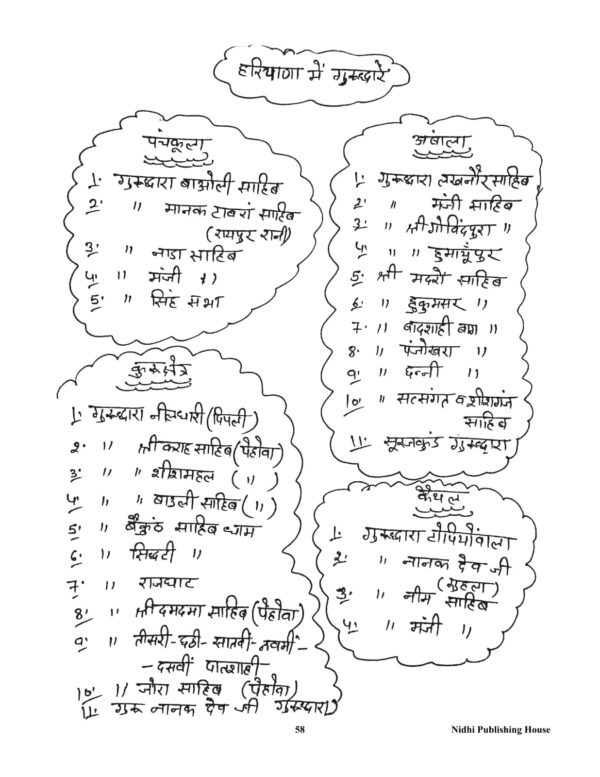 हरियाणा में गुरुद्वारे
पंचकुला
1. गुरुद्वारा बाओली साहिब
2. " मानक टाबरां साहिब
(रायपुर रानी)
3. " नाडा साहिब
4. " मंजी "
5. " सिंह सभा
अंबाला
1. गुरुद्वारा लखनौर साहिब
2. " मंजी साहिब
3. " श्री गोविंदपुरा "
4. " " हुमायूँपुर
5. श्री मदरो साहिब
6. " हुकुमसर "
7. " बादशाही बाग "
8. " पंजोखरा "
9. " छन्नी "
10. " सत्संगत व शीशगंज
साहिब
11. सूरजकुंड गुरुद्वारा
कुरुक्षेत्र
1. गुरुद्वारा नीलधारी (पिपली)
2. " श्री कराह साहिब (पेहोवा)
3. " " शीशमहल ( " )
4. " " बाउली साहिब ( " )
5. " बैकुंठ साहिब धाम
6. " सिद्धटी "
7. " राजघाट
8. " श्री दमदमा साहिब (पेहोवा)
9. " तीसरी-छठी-सातवीं-नवमीं-
-दसवीं पातशाही
10. " जोरा साहिब (पेहोवा)
11. गुरू नानक देव जी गुरुद्वारा
कैथल
1. गुरुद्वारा टोपियोंवाला
2. " नानक देव जी
(गुहला)
3. " नीम साहिब
4. " मंजी "
58
Nidhi Publishing House